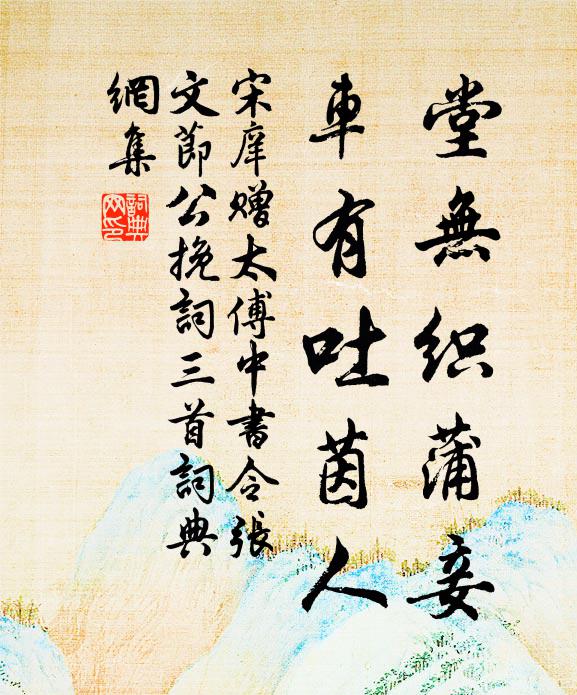 堂無织蒲妾
車有吐茵人
宋庠赠太傅中書令張
文節公挽詞三首詞典
網集
詞典
网印